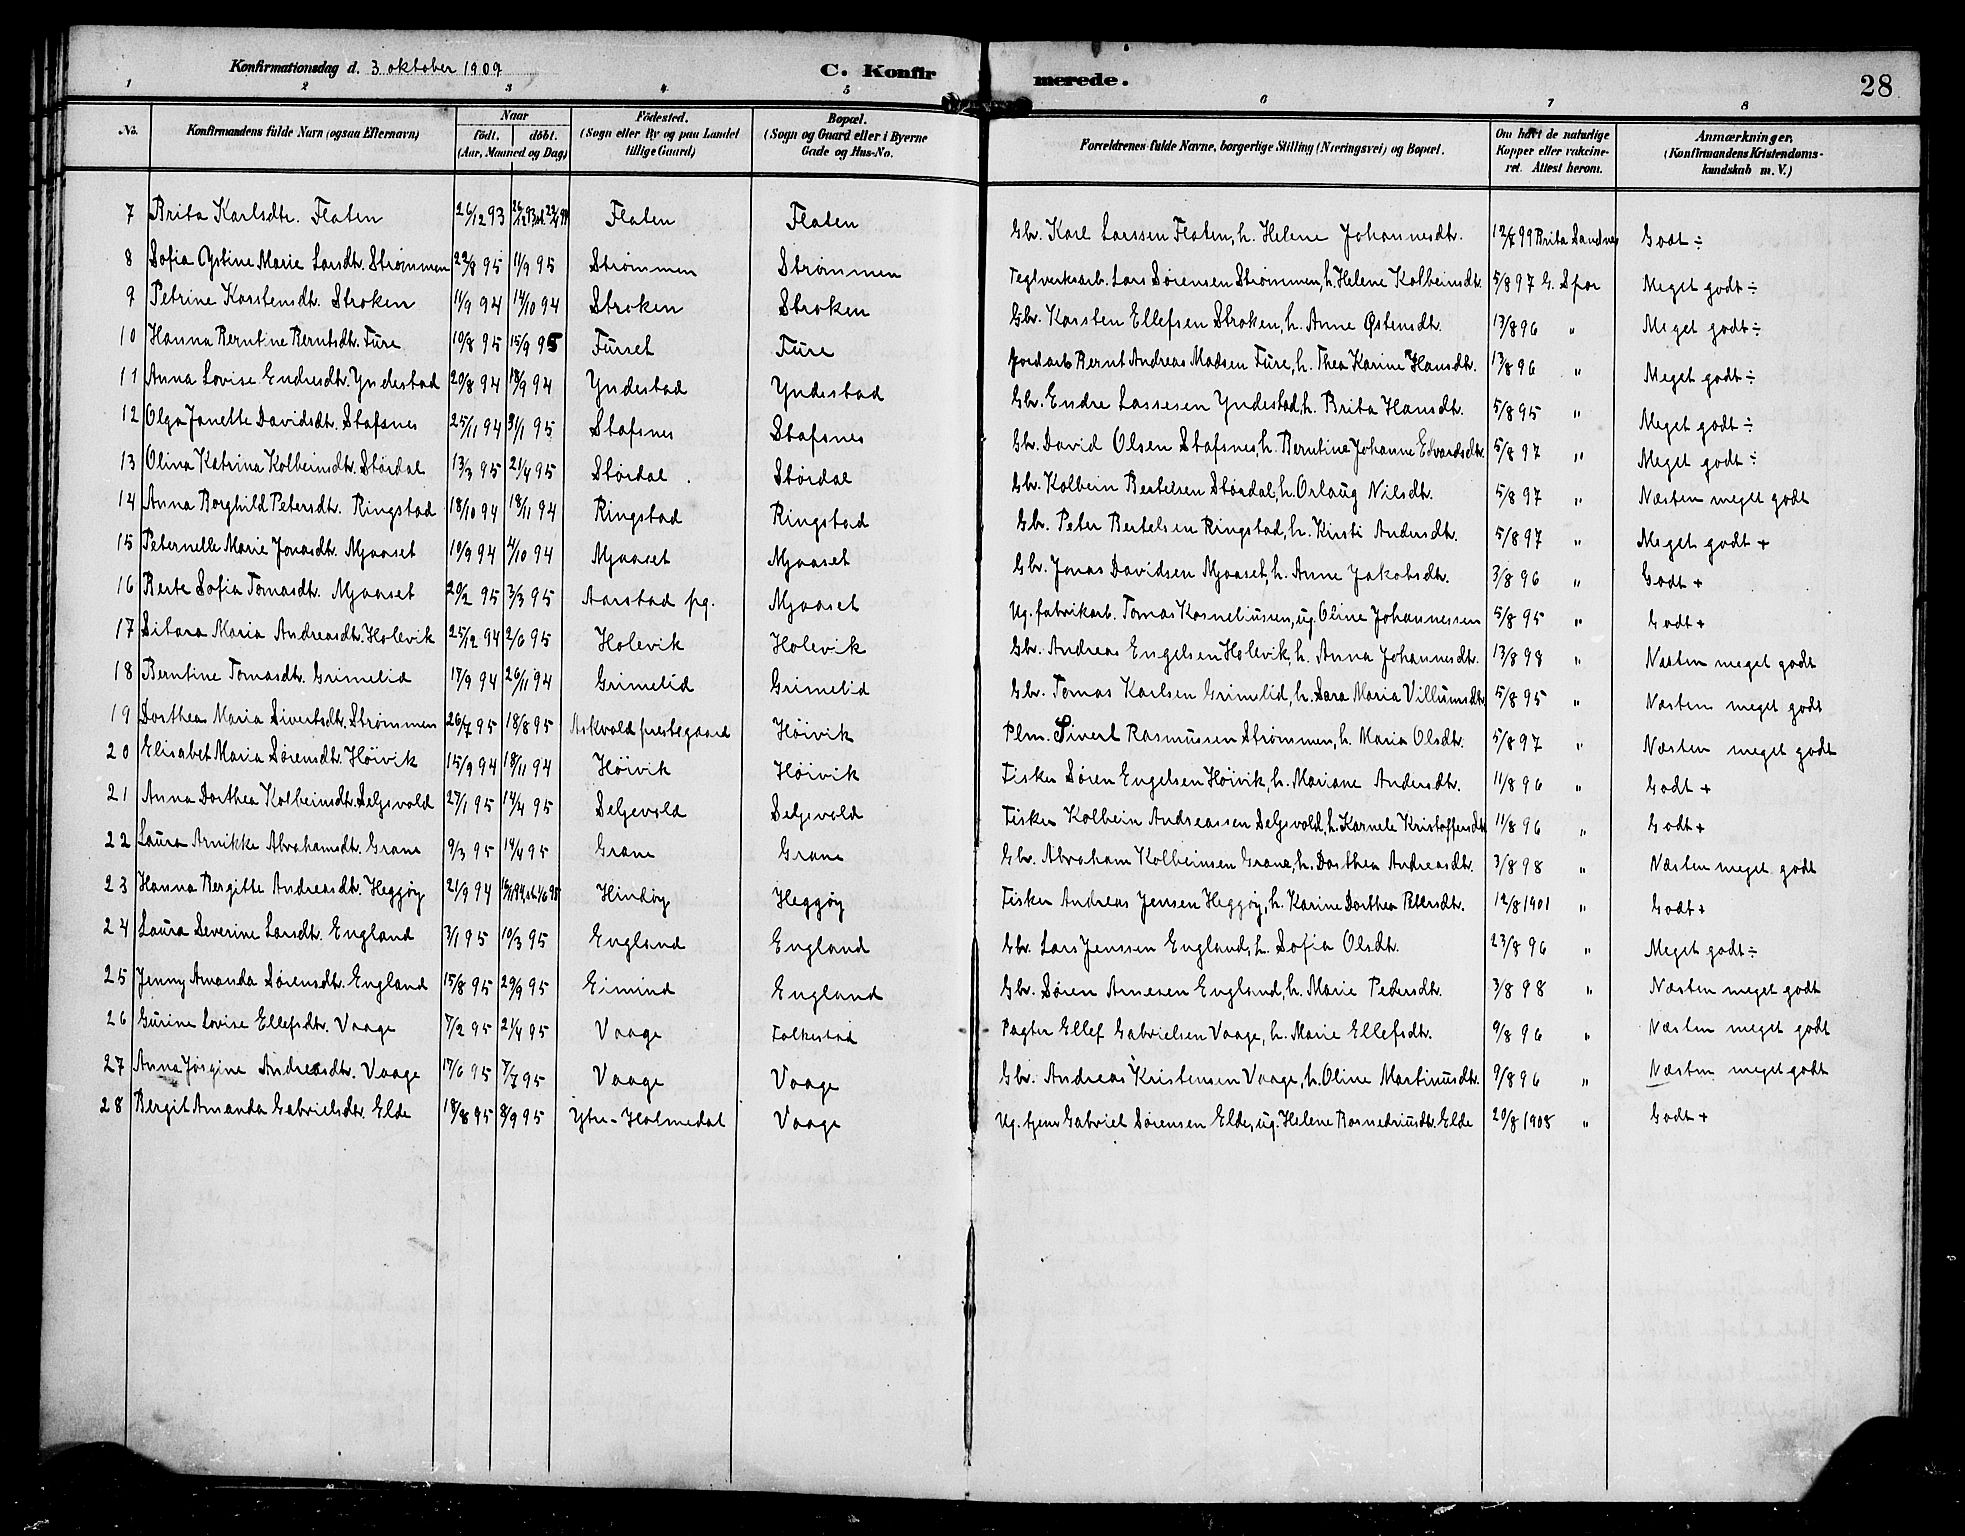 Konfirmationsdag d. 3 oktober 1909 C. Konfirmerede. 28
1 2 3 4 5 6 7 8
No. Konfirmandens fulde Navn (ogsaa Efternavn) Naar født. døbt. (Aar, Maaned og Dag) Fødested. (Sogn eller By og paa Landet tillige Gaard) Bopæl. (Sogn og Gaard eller i Byerne Gade og Hus-No. Forældrenes fulde Navne, borgerlige Stilling (Næringsvei) og Bopæl. Om havt de naturlige Kopper eller vakcineret. Attest herom. Anmærkninger. (Konfirmandens Kristendomskundskab m. V.)
7 Brita Karlsdtr. Flaten 26/12 93 Flaten Flaten Gbr. Karl Larssen Flaten, h. Helene Johannesdtr. 12/7 99 Brita Sandnes Godt ÷
8 Sofia Oystine Marie Larsdtr. Strømmen 22/8 95 11/9 95 Strømmen Strømmen Teglverksarb. Lars Sørensen Strømmen, h. Helene Kolbeinsdtr. 5/8 97 G. Spor Meget godt ÷
9 Petrine Karstensdtr. Stroken 11/9 94 14/10 94 Stroken Stroken Gbr. Karsten Ellefsen Stroken, h. Anne Østensdtr. 13/8 96 " Meget godt ÷
10 Hanna Berntine Berntsdtr. Fure 10/8 95 15/9 95 Furset Fure Jordarb. Bernt Andreas Madsen Fure, h. Thea Karine Hansdtr. 13/8 96 " Meget godt ÷
11 Anna Lovise Endresdtr. Yndestad 20/8 94 18/9 94 Yndestad Yndestad Gbr. Endre Lassesen Yndestad, h. Brita Hansdtr. 5/8 95 " Meget godt ÷
12 Olga Janette Davidsdtr. Stafsnes 25/11 94 31/1 95 Stafsnes Stafsnes Gbr. David Olsen Stafsnes, h. Berntine Johanne Edvardsdtr 5/8 97 " Meget godt ÷
13 Olina Katrina Kolbeinsdtr. Størdal 13/3 95 21/4 95 Størdal Størdal Gbr. Kolbein Bertelsen Størdal, h. Orlaug Nilsdtr. 5/8 97 " Næsten meget godt
14 Anna Borghild Petersdtr. Ringstad 18/10 94 18/11 94 Ringstad Ringstad Gbr. Peter Bertelsen Ringstad, h. Kirsti Andersdtr. 5/8 97 " Meget godt +
15 Peternelle Marie Jonasdtr. Mjaaset 10/9 94 4/10 94 Mjaaset Mjaaset Gbr. Jonas Davidsen Mjaaset, h. Anne Jakobsdtr. 3/8 96 " Godt +
16 Berte Sofia Tomasdtr. Mjaaset 20/2 95 3/3 95 Aarstad pg. Mjaaset Ug. fabrikarb. Tomas Korneliussen, ug. Oline Johannessen 5/8 95 " Godt +
17 Sitara Maria Andreasdtr. Holevik 25/12 94 2/6 95 Holevik Holevik Gbr. Andreas Engelsen Holevik, h. Anna Johannesdtr. 13/8 98 " Næsten meget godt
18 Berntine Tomasdtr. Grimelid 17/9 94 26/11 94 Grimelid Grimelid Gbr. Tomas Karlsen Grimelid, h. Sara Maria Villumsdtr 5/8 95 " Næsten meget godt
19 Dorthea Maria Sivertsdtr. Strømmen 26/7 95 18/8 95 Askvold prestegaard Høivik Plm. Sivert Rasmussen Strømmen, h. Maria Olsdtr. 5/8 97 " Næsten meget godt
20 Elisabet Maria Sørensdtr. Høivik 15/9 94 18/11 94 Høivik Høivik Fisker Søren Engelsen Høivik, h. Mariane Andersdtr. 11/8 96 " Godt +
21 Anna Dorthea Kolbeinsdtr. Seljevold 27/1 95 14/4 95 Seljevold Seljevold Fisker Kolbein Andreassen Seljevold, h. Karnele Kristoffersdtr 11/8 96 " Godt +
22 Laura Arnikke Abrahamsdtr. Grane 9/3 95 14/4 95 Grane Grane Gbr. Abraham Kolbeinsen Grane, h. Dorthea Andreasdtr. 3/8 98 " Næsten meget godt
23 Hanna Bergitte Andreasdtr. Heggøy 21/9 94 Hindøy Heggøy Fisker Andreas Jensen Heggøy, h. Karine Dorthea Petersdtr. 12/8 1901 " Godt +
24 Laura Severine Larsdtr. England 3/1 95 10/3 95 England England Gbr. Lars Jenssen England, h. Sofia Olsdtr. 23/8 96 " Meget godt ÷
25 Jenny Amanda Sørensdtr. England 15/8 95 29/9 95 Eimind England Gbr. Søren Arnesen England, h. Marie Pedersdtr. 3/8 98 " Næsten meget godt
26 Gurine Lovise Ellefsdtr. Vaage 7/2 95 21/4 95 Vaage Folkestad Pagter Ellef Gabrielsen Vaage, h. Marie Ellefsdtr. 9/8 96 " Næsten meget godt
27 Anna Jorgine Andreasdtr. Vaage 17/6 95 7/7 95 Vaage Vaage Gbr. Andreas Kristensen Vaage, h. Oline Martinusdtr. 9/8 96 " Næsten meget godt
28 Bergit Amanda Gabrielsdtr. Elde 18/8 95 8/9 95 Ytre-Holmedal Vaage Ug. tjener Gabriel Sørensen Elde, ug. Helene Rasmedriusdtr. Elde 20/8 1908 " Godt +